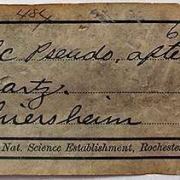 484 6
c Pseudo. afte
artz.
iersheim
Nat. Science Establishment, Rochester